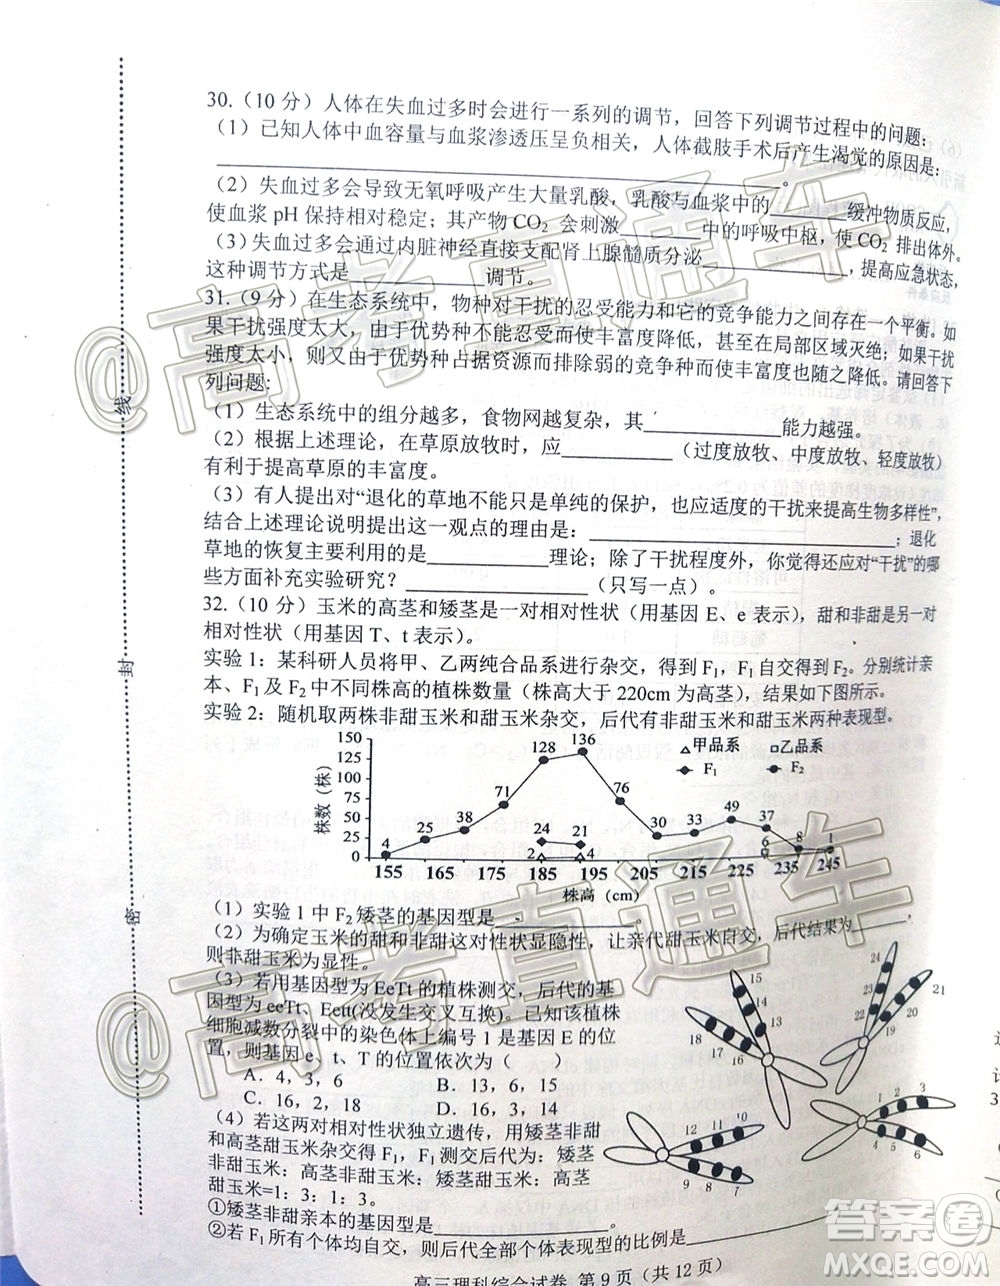 30.（10 分）人体在失血过多时会进行一系列的调节，回答下列调节过程中的问题：
（1）已知人体中血容量与血浆渗透压呈负相关，人体截肢手术后产生渴觉的原因是：
。
（2）失血过多会导致无氧呼吸产生大量乳酸，乳酸与血浆中的 缓冲物质反应，
使血浆 pH 保持相对稳定；其产物 CO2 会刺激 中的呼吸中枢，使 CO2 排出体外。
（3）失血过多会通过内脏神经直接支配肾上腺髓质分泌 ，提高应急状态，
这种调节方式是 调节。
31.（9 分）在生态系统中，物种对干扰的忍受能力和它的竞争能力之间存在一个平衡。如
果干扰强度太大，由于优势种不能忍受而使丰富度降低，甚至在局部区域灭绝；如果干扰
强度太小，则又由于优势种占据资源而排除弱的竞争种而使丰富度也随之降低。请回答下
列问题：
（1）生态系统中的组分越多，食物网越复杂，其 能力越强。
（2）根据上述理论，在草原放牧时，应 （过度放牧、中度放牧、轻度放牧）
有利于提高草原的丰富度。
（3）有人提出对“退化的草地不能只是单纯的保护，也应适度的干扰来提高生物多样性”，
结合上述理论说明提出这一观点的理由是： ；退化
草地的恢复主要利用的是 理论；除了干扰程度外，你觉得还应对“干扰”的哪
些方面补充实验研究？ （只写一点）。
32.（10 分）玉米的高茎和矮茎是一对相对性状（用基因 E、e 表示），甜和非甜是另一对
相对性状（用基因 T、t 表示）。
实验 1：某科研人员将甲、乙两纯合品系进行杂交，得到 F1，F1 自交得到 F2。分别统计亲
本、F1 及 F2 中不同株高的植株数量（株高大于 220cm 为高茎），结果如下图所示。
实验 2：随机取两株非甜玉米和甜玉米杂交，后代有非甜玉米和甜玉米两种表现型。
150
125
100
75
50
25
0
株数（株）
4 25 38 71 128 136 76 30 33 49 37 8 1
24 21
2 4
6
甲品系 乙品系
F1 F2
155 165 175 185 195 205 215 225 235 245
株高（cm）
（1）实验 1 中 F2 矮茎的基因型是 。
（2）为确定玉米的甜和非甜这对性状显隐性，让亲代甜玉米自交，后代结果为 ，
则非甜玉米为显性。
（3）若用基因型为 EeTt 的植株测交，后代的基
因型为 eeTt、Eett(没发生交叉互换)。已知该植株
细胞减数分裂中的染色体上编号 1 是基因 E 的位
置，则基因 e、t、T 的位置依次为（ ）
A．4，3，6 B．13，6，15
C．16，2，18 D．16，3，14
（4）若这两对相对性状独立遗传，用矮茎非甜
和高茎甜玉米杂交得 F1，F1 测交后代为：矮茎
非甜玉米：高茎非甜玉米：矮茎甜玉米：高茎
甜玉米=1：3：1：3。
①矮茎非甜亲本的基因型是 。
②若 F1 所有个体均自交，则后代全部个体表现型的比例是
15 14 13
18 17 16
24 23 22
21
1 2 3
4 5 6
12 11 10
7 8 9
线
封
密
高三理科综合试卷 第 9 页（共 12 页）
@高考直通车
@高考直通车
答案圈
MXQE.COM